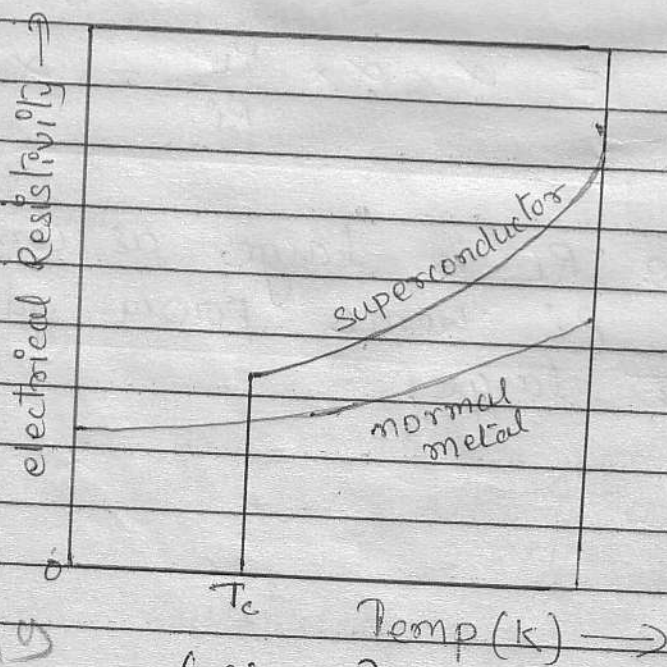 electrical Resistivity
superconductor
normal
metal
0
Tc
Temp (K)